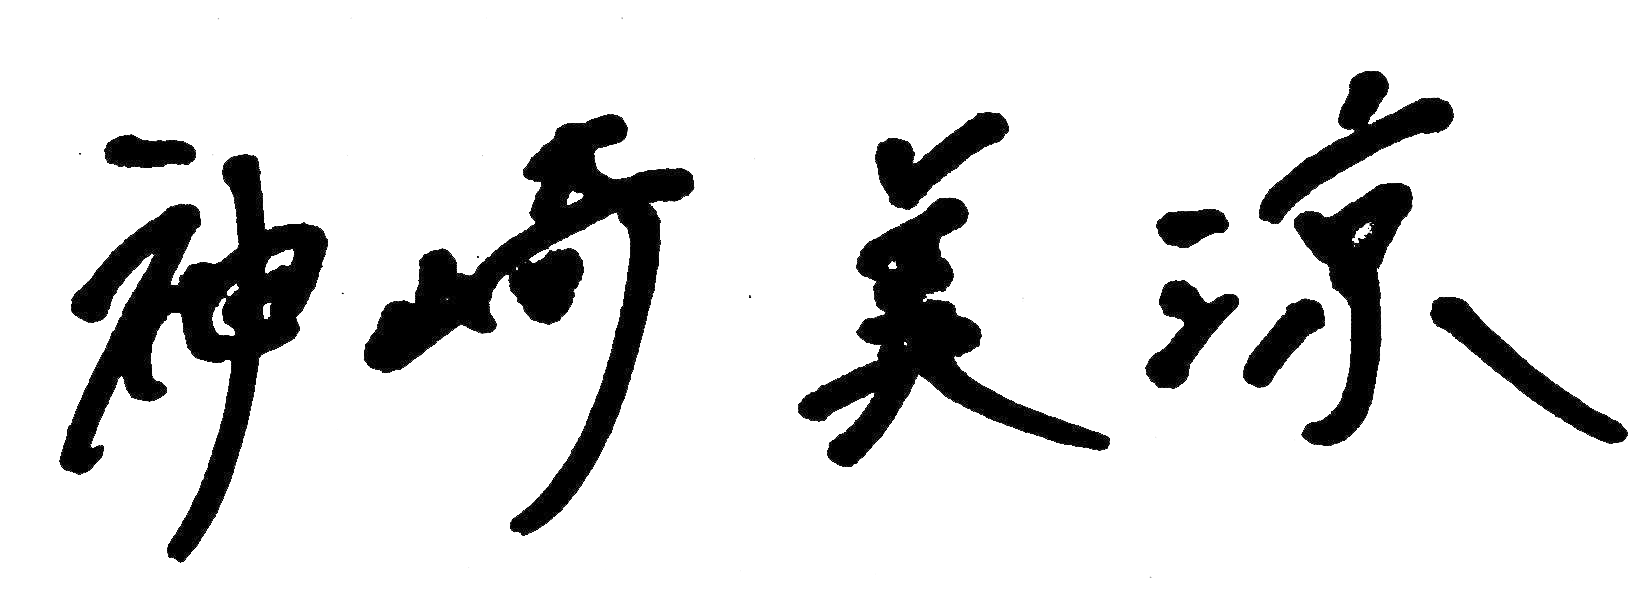 神崎美涼